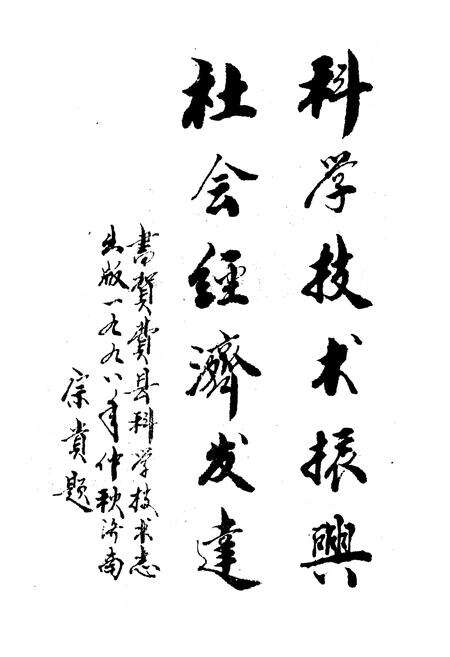 科学技术振興
社会經濟发達
書賀費县科学技术志
出版一九九八年仲秋济南
宗貴題